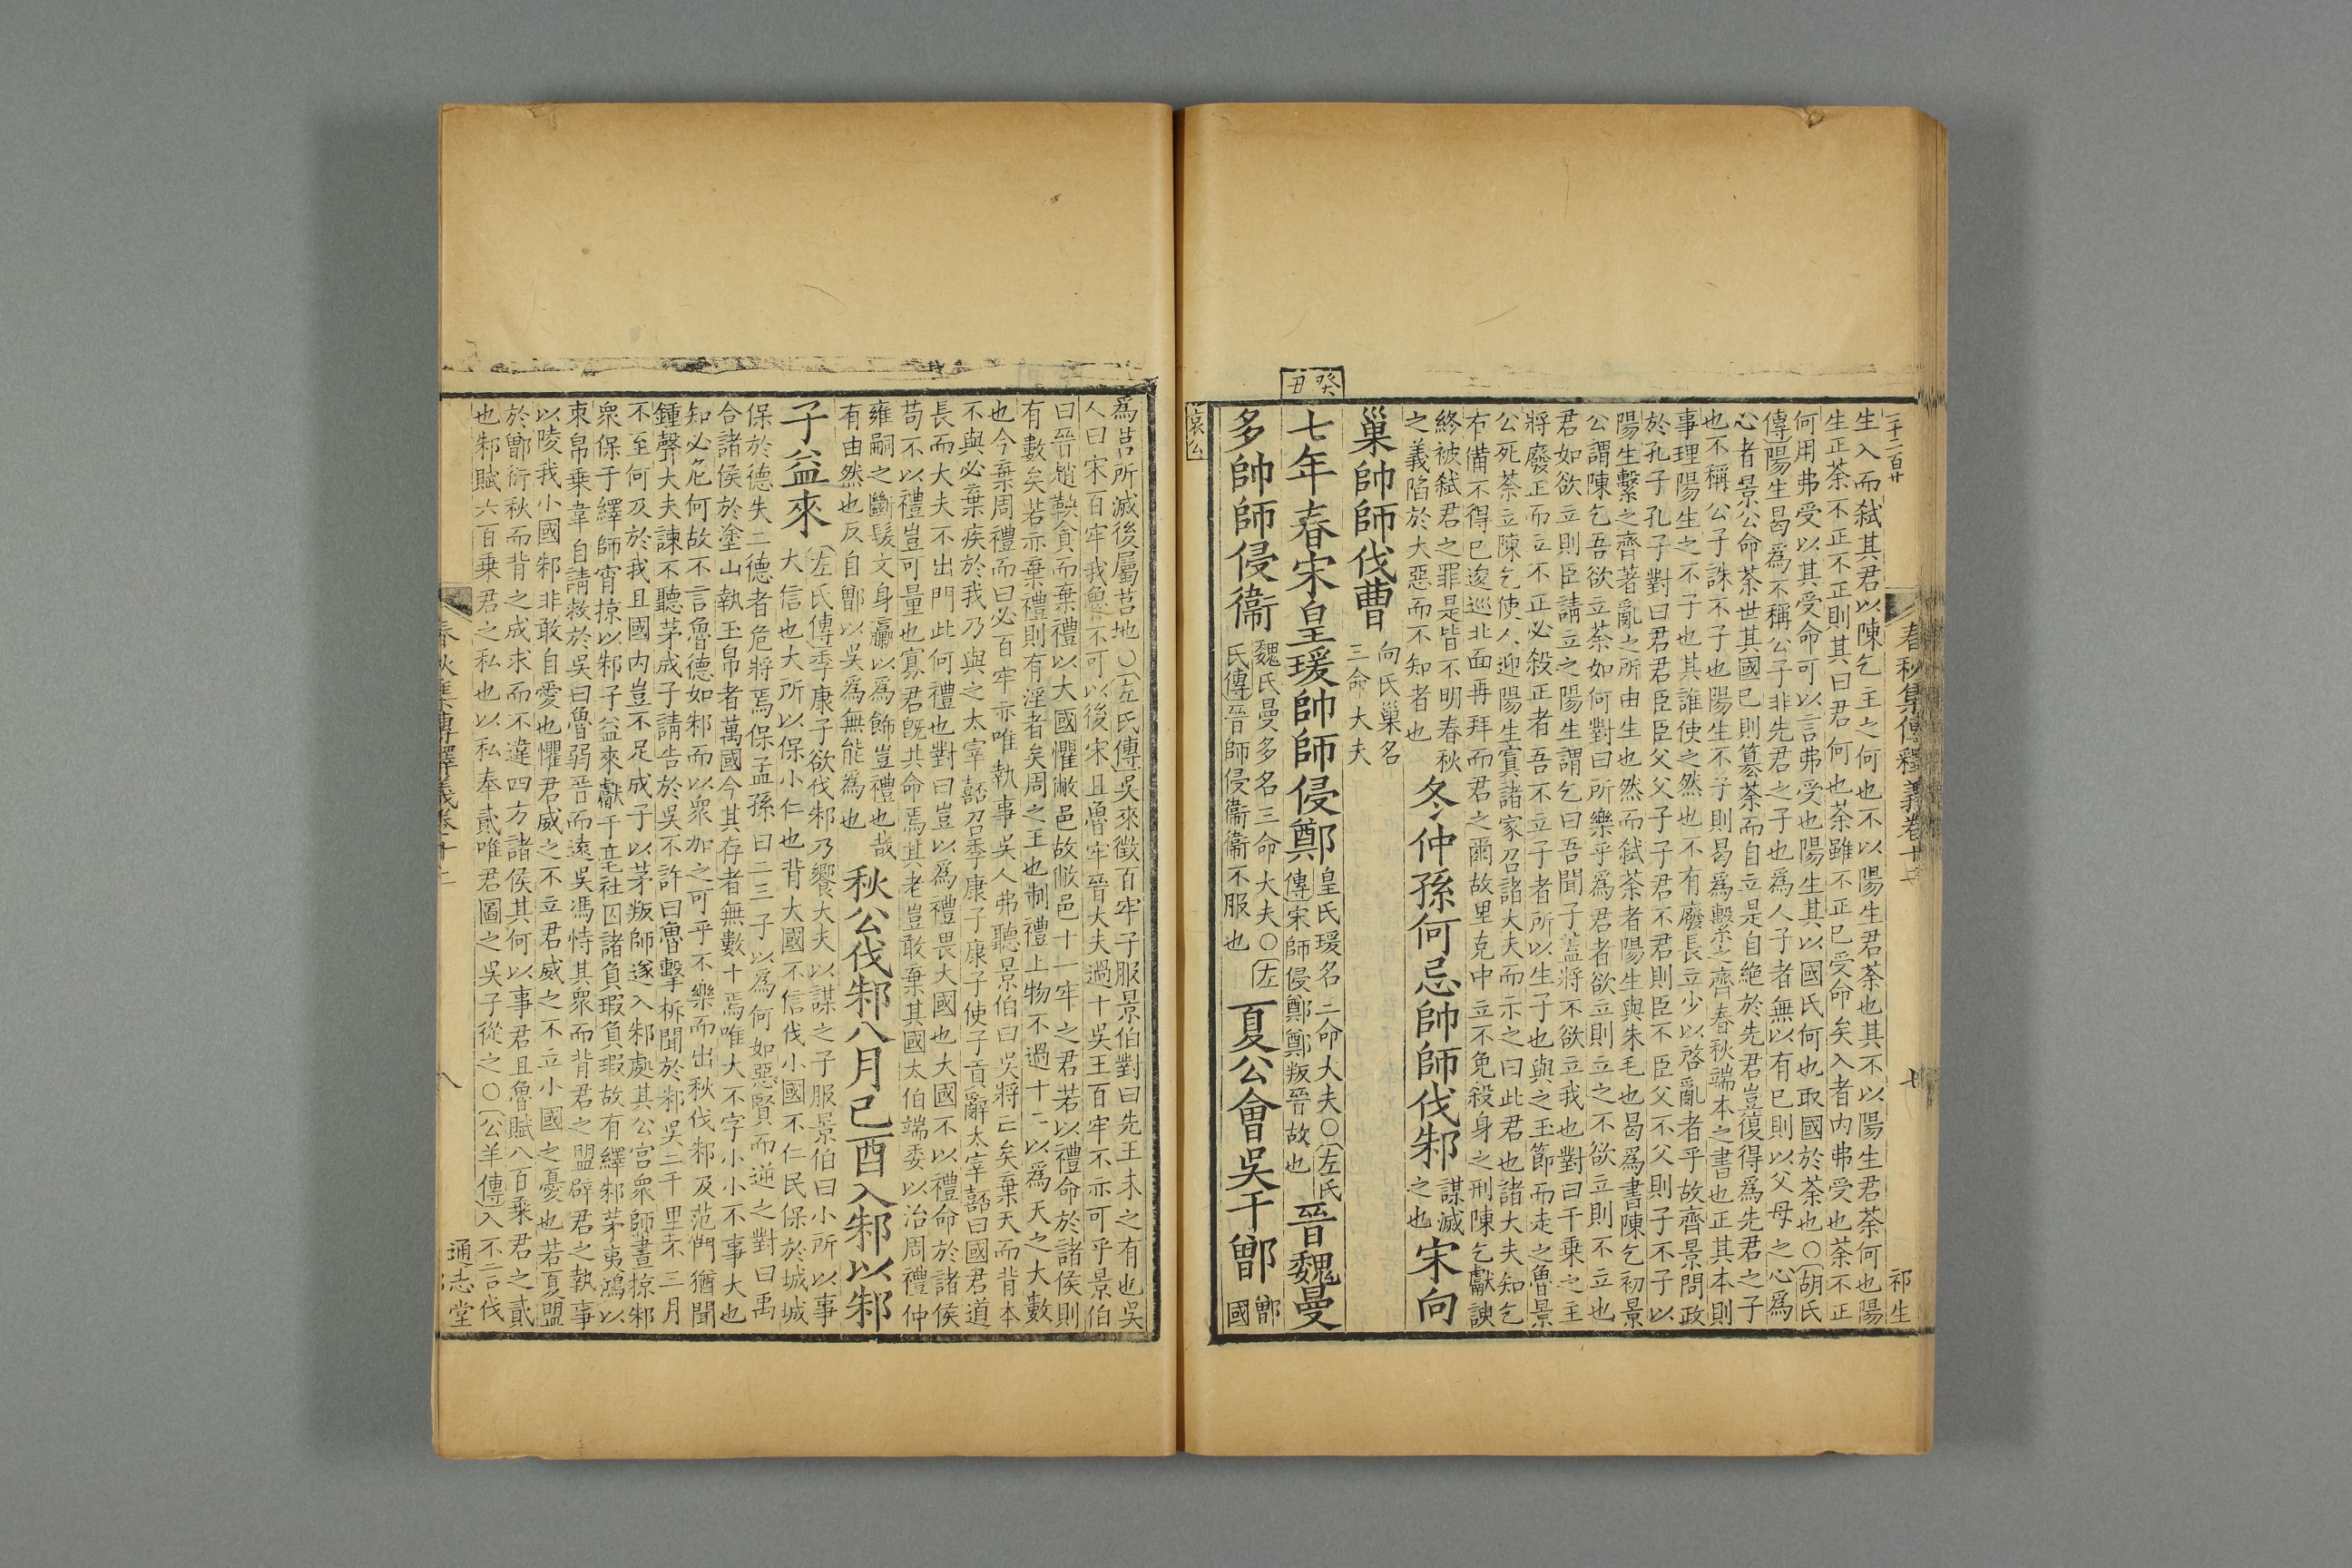 二千二百廿
春秋集傳釋義卷十二
七
祁生
生入而弑其君以陳乞主之何也不以陽生君荼也其不以陽生君荼何也陽
生正荼不正不正則其曰君何也荼雖不正已受命矣入者内弗受也荼不正
何用弗受以其受命可以言弗受也陽生其以國氏何也取國於荼也○胡氏
傳陽生曷爲不稱公子非先君之子也爲人子者無以有已則以父母之心爲
心者景公命荼世其國已則簒荼而自立是自絶於先君豈復得爲先君之子
也不稱公子誅不子也陽生不子則曷爲繫之齊春秋端本之書也正其本則
事理陽生之不子也其誰使之然也不有廢長立少以啓亂者乎故齊景問政
於孔子孔子對曰君君臣臣父父子子君不君則臣不臣父不父則子不子以
陽生繫之齊著亂之所由生也然而弑荼者陽生與朱毛也曷爲書陳乞初景
公謂陳乞吾欲立荼如何對曰所樂乎爲君者欲立則立之不欲立則不立也
君如欲立則臣請立之陽生謂乞曰吾聞子蓋將不欲立我也對曰千乗之主
將廢正而立不正必殺正者吾不立子者所以生子也與之玉節而走之魯景
公死荼立陳乞使人迎陽生寘諸家召諸大夫而示之曰此君也諸大夫知乞
有備不得已逡巡北面再拜而君之爾故里克中立不免殺身之刑陳乞獻諛
終被弑君之罪是皆不明春秋
之義陷於大惡而不知者也
冬仲孫何忌帥師伐邾
謀滅
之也
宋向
巢帥師伐曹
向氏巢名
三命大夫
癸丑
七年春宋皇瑗帥師侵鄭
皇氏瑗名二命大夫○左氏
傳宋師侵鄭鄭叛晉故也
晉魏曼
多帥師侵衞
魏氏曼多名三命大夫○左
氏傳晉師侵衞衞不服也
夏公會吳于鄫
鄫
國
哀公
爲莒所滅後屬莒地○左氏傳吳來徵百牢子服景伯對曰先王未之有也吳
人曰宋百牢我魯不可以後宋且魯牢晉大夫過十吳王百牢不亦可乎景伯
曰晉趙鞅貪而棄禮以大國懼敝邑故敝邑十一牢之君若以禮命於諸侯則
有數矣若亦棄禮則有淫者矣周之王也制禮上物不過十二以爲天之大數
也今棄周禮而曰必百牢亦唯執事吳人弗聽景伯曰吳將亡矣棄天而背本
不與必棄疾於我乃與之太宰嚭召季康子康子使子貢辭太宰嚭曰國君道
長而大夫不出門此何禮也對曰豈以爲禮畏大國也大國不以禮命於諸侯
苟不以禮豈可量也寡君旣共命焉其老豈敢棄其國太伯端委以治周禮仲
雍嗣之斷髮文身臝以爲飾豈禮也哉
有由然也反自鄫以吳爲無能爲也
秋公伐邾八月己酉入邾以邾
子益來
左氏傳季康子欲伐邾乃饗大夫以謀之子服景伯曰小所以事
大信也大所以保小仁也背大國不信伐小國不仁民保於城城
保於德失二德者危將焉保孟孫曰二三子以爲何如惡賢而逆之對曰禹
合諸侯於塗山執玉帛者萬國今其存者無數十焉唯大不字小小不事大也
知必危何故不言魯德如邾而以衆加之可乎不樂而出秋伐邾及范門猶聞
鍾聲大夫諫不聽茅成子請告於吳不許曰魯擊柝聞於邾吳二千里不三月
不至何及於我且國内豈不足成子以茅叛師遂入邾處其公宮衆師晝掠邾
衆保于繹師宵掠以邾子益來獻于亳社囚諸負瑕負瑕故有繹邾茅夷鴻以
束帛乗韋自請救於吳曰魯弱晉而遠吳馮恃其衆而背君之盟辟君之執事
以陵我小國邾非敢自愛也懼君威之不立君威之不立小國之憂也若夏盟
於鄫衍秋而背之成求而不違四方諸侯其何以事君且魯賦八百乗君之貳
也邾賦六百乗君之私也以私奉貳唯君圖之吳子從之○公羊傳入不言伐
春秋集傳釋義卷十二
八
通志堂